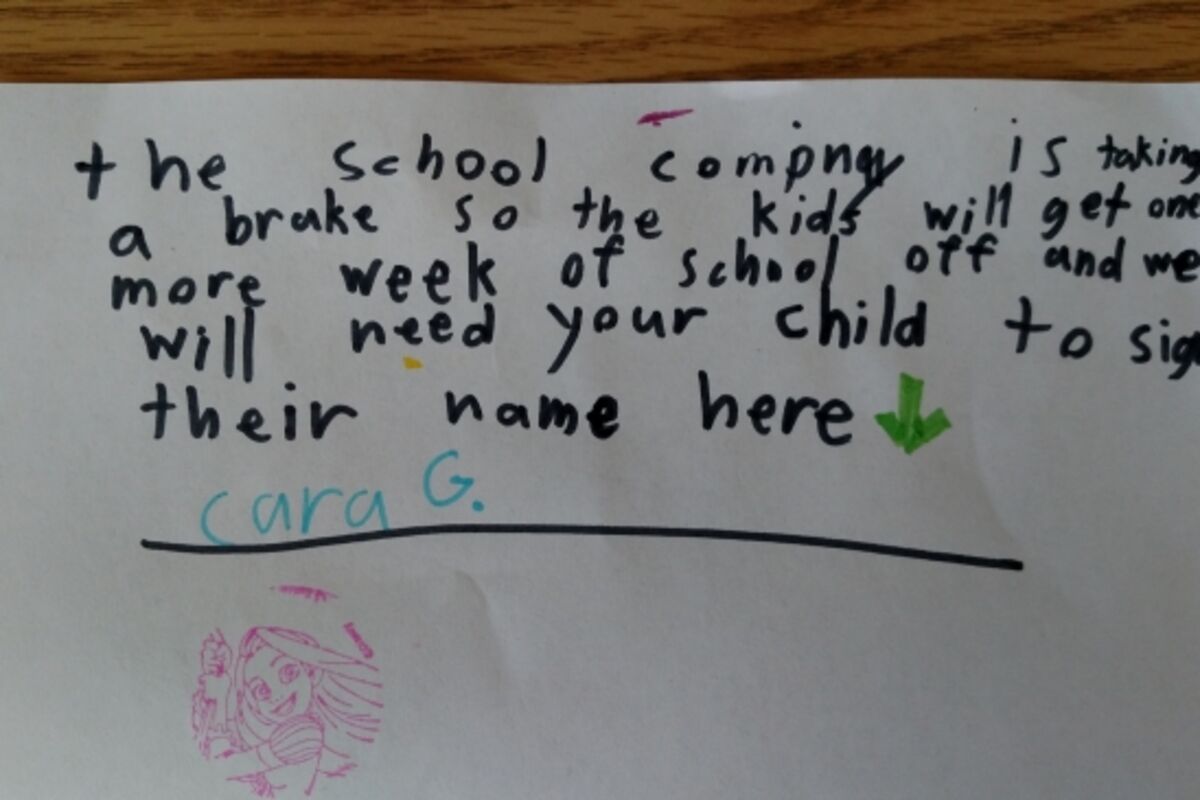 the school compnay is taking
a brake so the kids will get one
more week of school off and we
will need your child to sig
their name here
cara G.